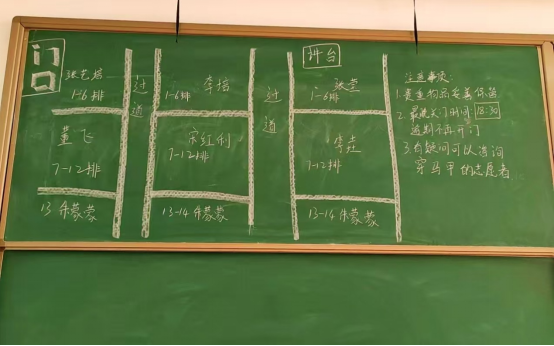 门口
讲台
张艺培
1-6排
过道
李培
1-6排
过道
张莹
1-6排
董飞
7-12排
宋红利
7-12排
李垚
7-12排
13 朱蒙蒙
13-14 朱蒙蒙
13-14 朱蒙蒙
注意事项:
1.贵重物品妥善保管
2.最晚关门时间 18:30
逾时不再开门
3.有疑问可以咨询
穿马甲的志愿者